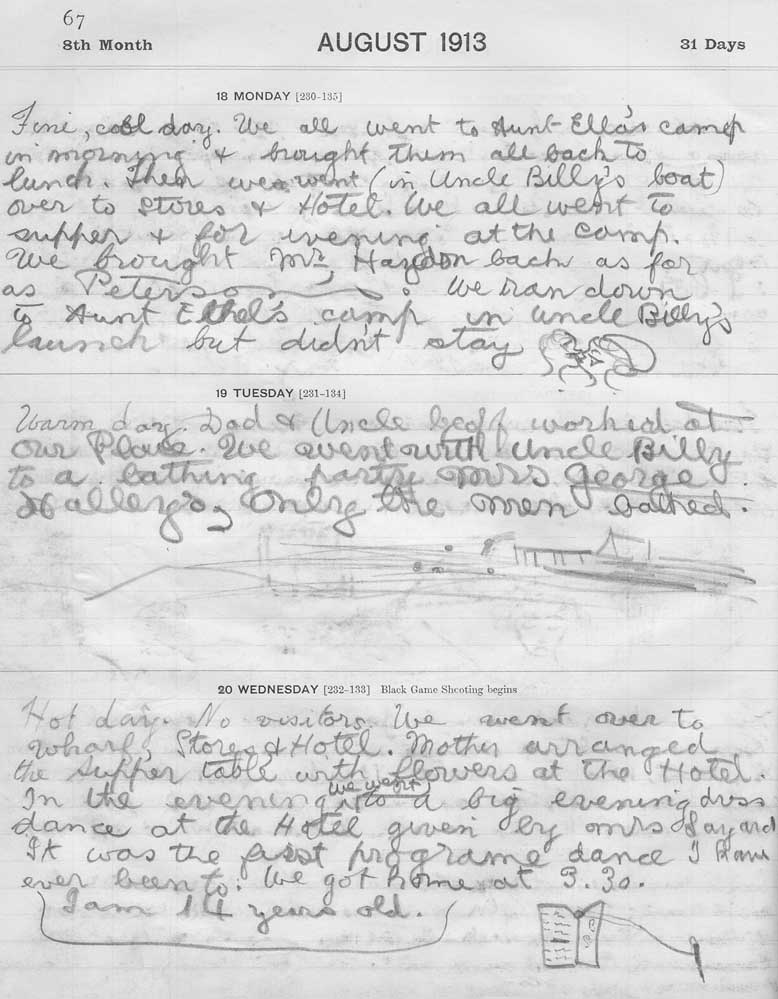 67
8th Month AUGUST 1913 31 Days
18 MONDAY [230-135]
Fine, cool day. We all went to Aunt Ella's camp
in morning & brought them all back to
lunch. Then we went (in Uncle Billy's boat)
over to Stores & Hotel. We all went to
supper & for evening at the camp.
We brought Mr. Haydon back as far
as Peterson. We ran down
to Aunt Ethel's camp in Uncle Billy's
launch but didn't stay
19 TUESDAY [231-134]
Warm day. Dad & Uncle Geoff worked at
our Place. We went with Uncle Billy
to a bathing party Mrs George
Halley's, Only the men bathed.
20 WEDNESDAY [232-133] Black Game Shooting begins
Hot day. No visitors. We went over to
wharf, Stores & Hotel. Mother arranged
the supper table with flowers at the Hotel.
In the evening we went to a big evening dress
dance at the Hotel given by Mrs Sayard
It was the first programe dance I have
ever been to. We got home at 3.30.
I am 14 years old.